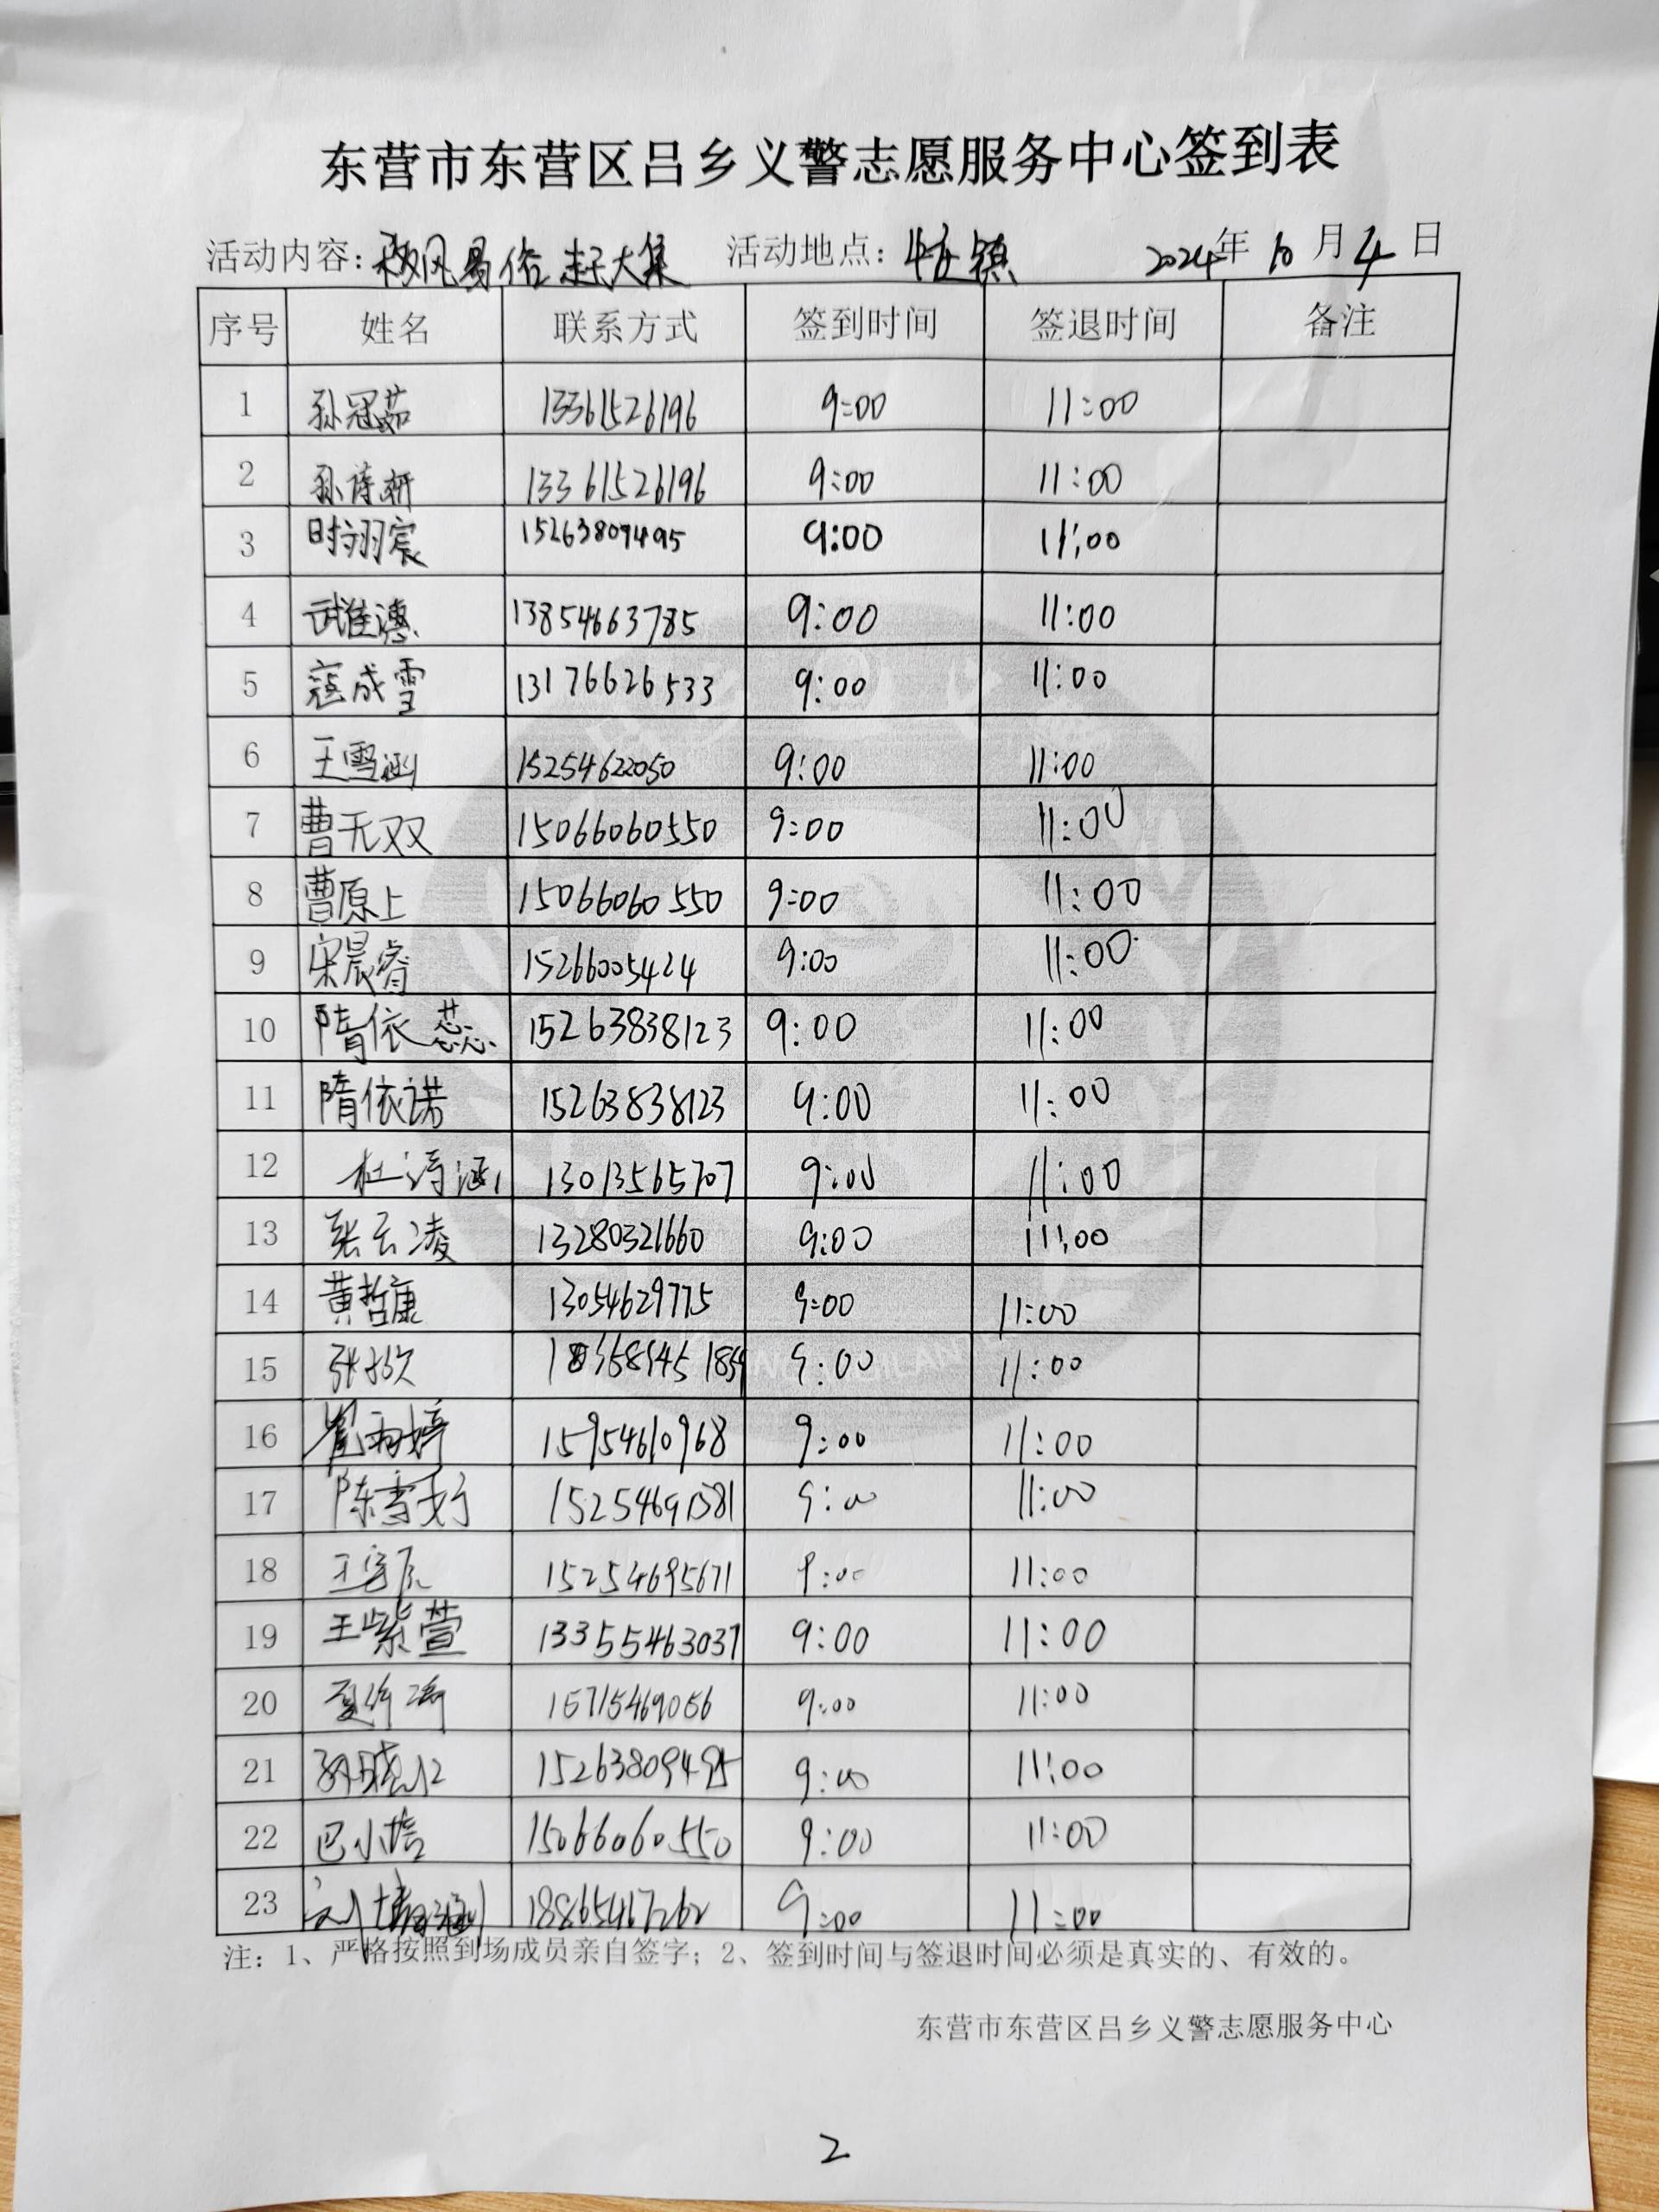 东营市东营区吕乡义警志愿服务中心签到表
活动内容：移风易俗赶大集 活动地点：牛庄镇 2024年10月4日
序号 姓名 联系方式 签到时间 签退时间 备注
1 孙冠茹 13361526196 9:00 11:00
2 孙诗妍 13361526196 9:00 11:00
3 时翊宸 15263809495 9:00 11:00
4 武佳德 13854663785 9:00 11:00
5 寇成雪 13176626533 9:00 11:00
6 王雪涵 15254622050 9:00 11:00
7 曹无双 15066060550 9:00 11:00
8 曹原上 15066060550 9:00 11:00
9 宋晨睿 15266005424 9:00 11:00
10 隋依蕊 15263838123 9:00 11:00
11 隋依诺 15263838123 9:00 11:00
12 杜涛涵 13013565707 9:00 11:00
13 张云凌 13280321660 9:00 11:00
14 黄哲康 13054629775 9:00 11:00
15 9:00 11:00
16 崔雨婷 15954610968 9:00 11:00
17 陈雪 9:00 11:00
18 王 15254695671 9:00 11:00
19 王紫萱 13355463037 9:00 11:00
20 夏 15715469056 9:00 11:00
21 孙晓 15263809495 9:00 11:00
22 巴小 15066060550 9:00 11:00
23 18865467262 9:00 11:00
注：1、严格按照到场成员亲自签字；2、签到时间与签退时间必须是真实的、有效的。
东营市东营区吕乡义警志愿服务中心
2